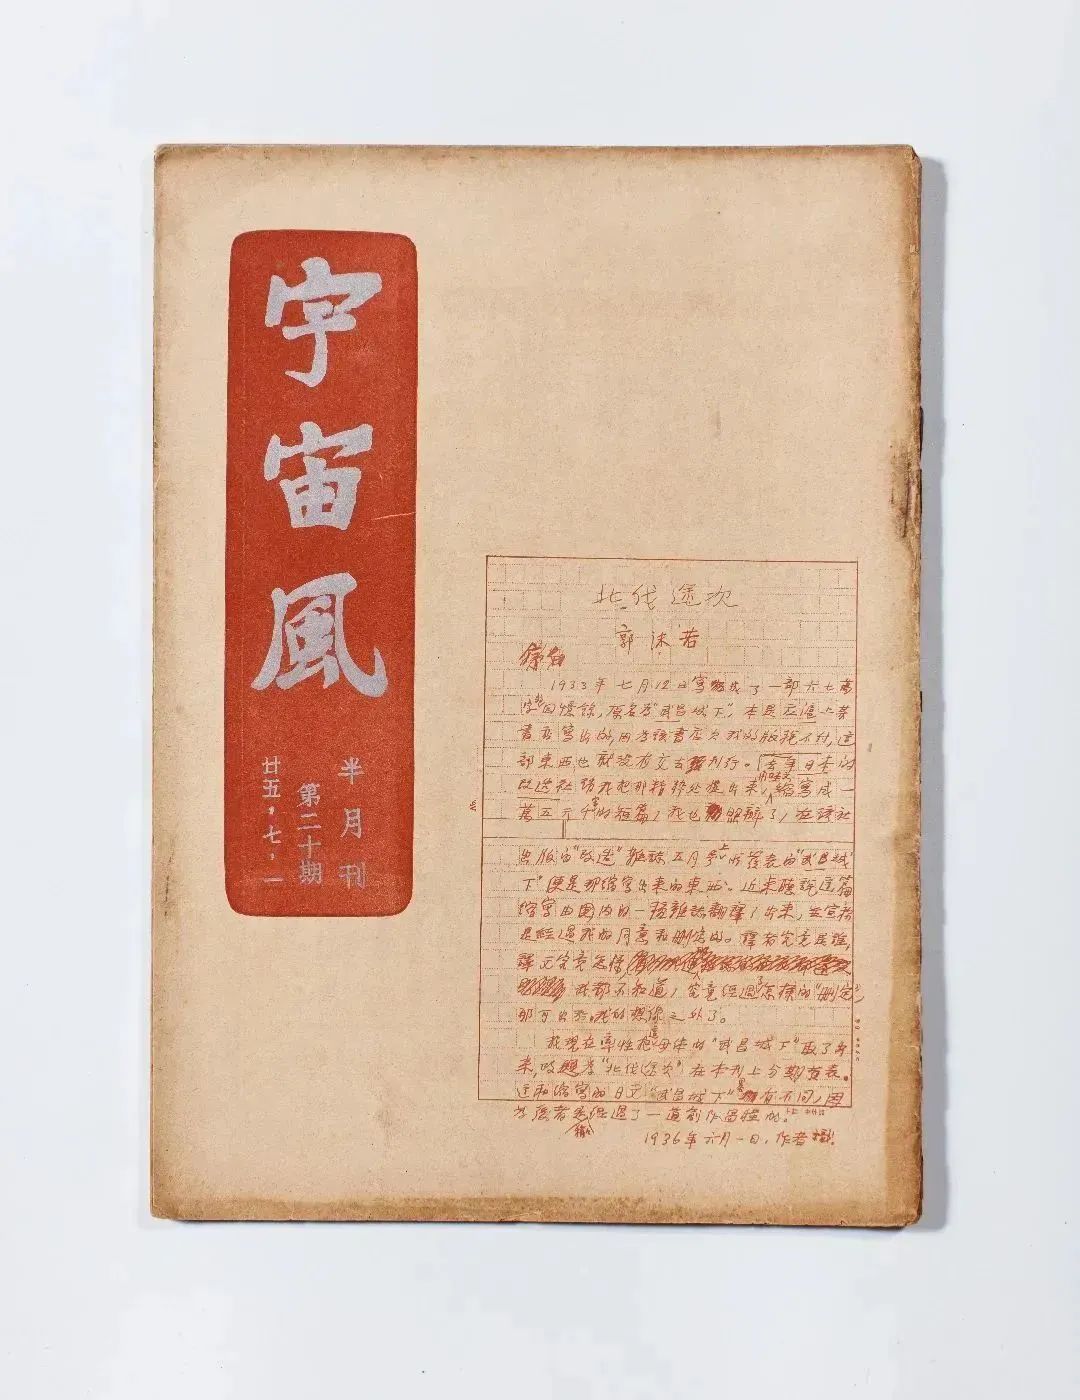 宇宙風
半月刊
第二十期
廿五·七·一
北伐途次
郭沫若
1933年七月12日寫成了一部六七萬
字的回憶錄，原名為“武昌城下”，本是應滬上某
書店寫出的，因為該書店欠我的版稅不付，這
部東西也就沒有交去刊行。去年日本的
改造社 我把那精粹處提出來， 縮寫成一
萬五六千字的短篇，我也照辦了，在該社
出版的“改造”雜誌五月號上所發表的“武昌城
下”便是那縮寫出來的東西。近來聽說這篇
縮寫由國內的一種雜誌翻譯了出來，並宣稱
是經過我的同意和刪定的。譯者究竟是誰，
譯文究竟怎樣，
我都不知道，究竟經過了怎樣的“刪定”，
那可出於我的想像之外了。
我現在率性把這母體的“武昌城下”取了出
來，改題為“北伐途次”在本刊上分期發表。
這和縮寫的日文“武昌城下” 有不同，因
為後者是經過了一道創作過程的。
1936年六月一日，作者識